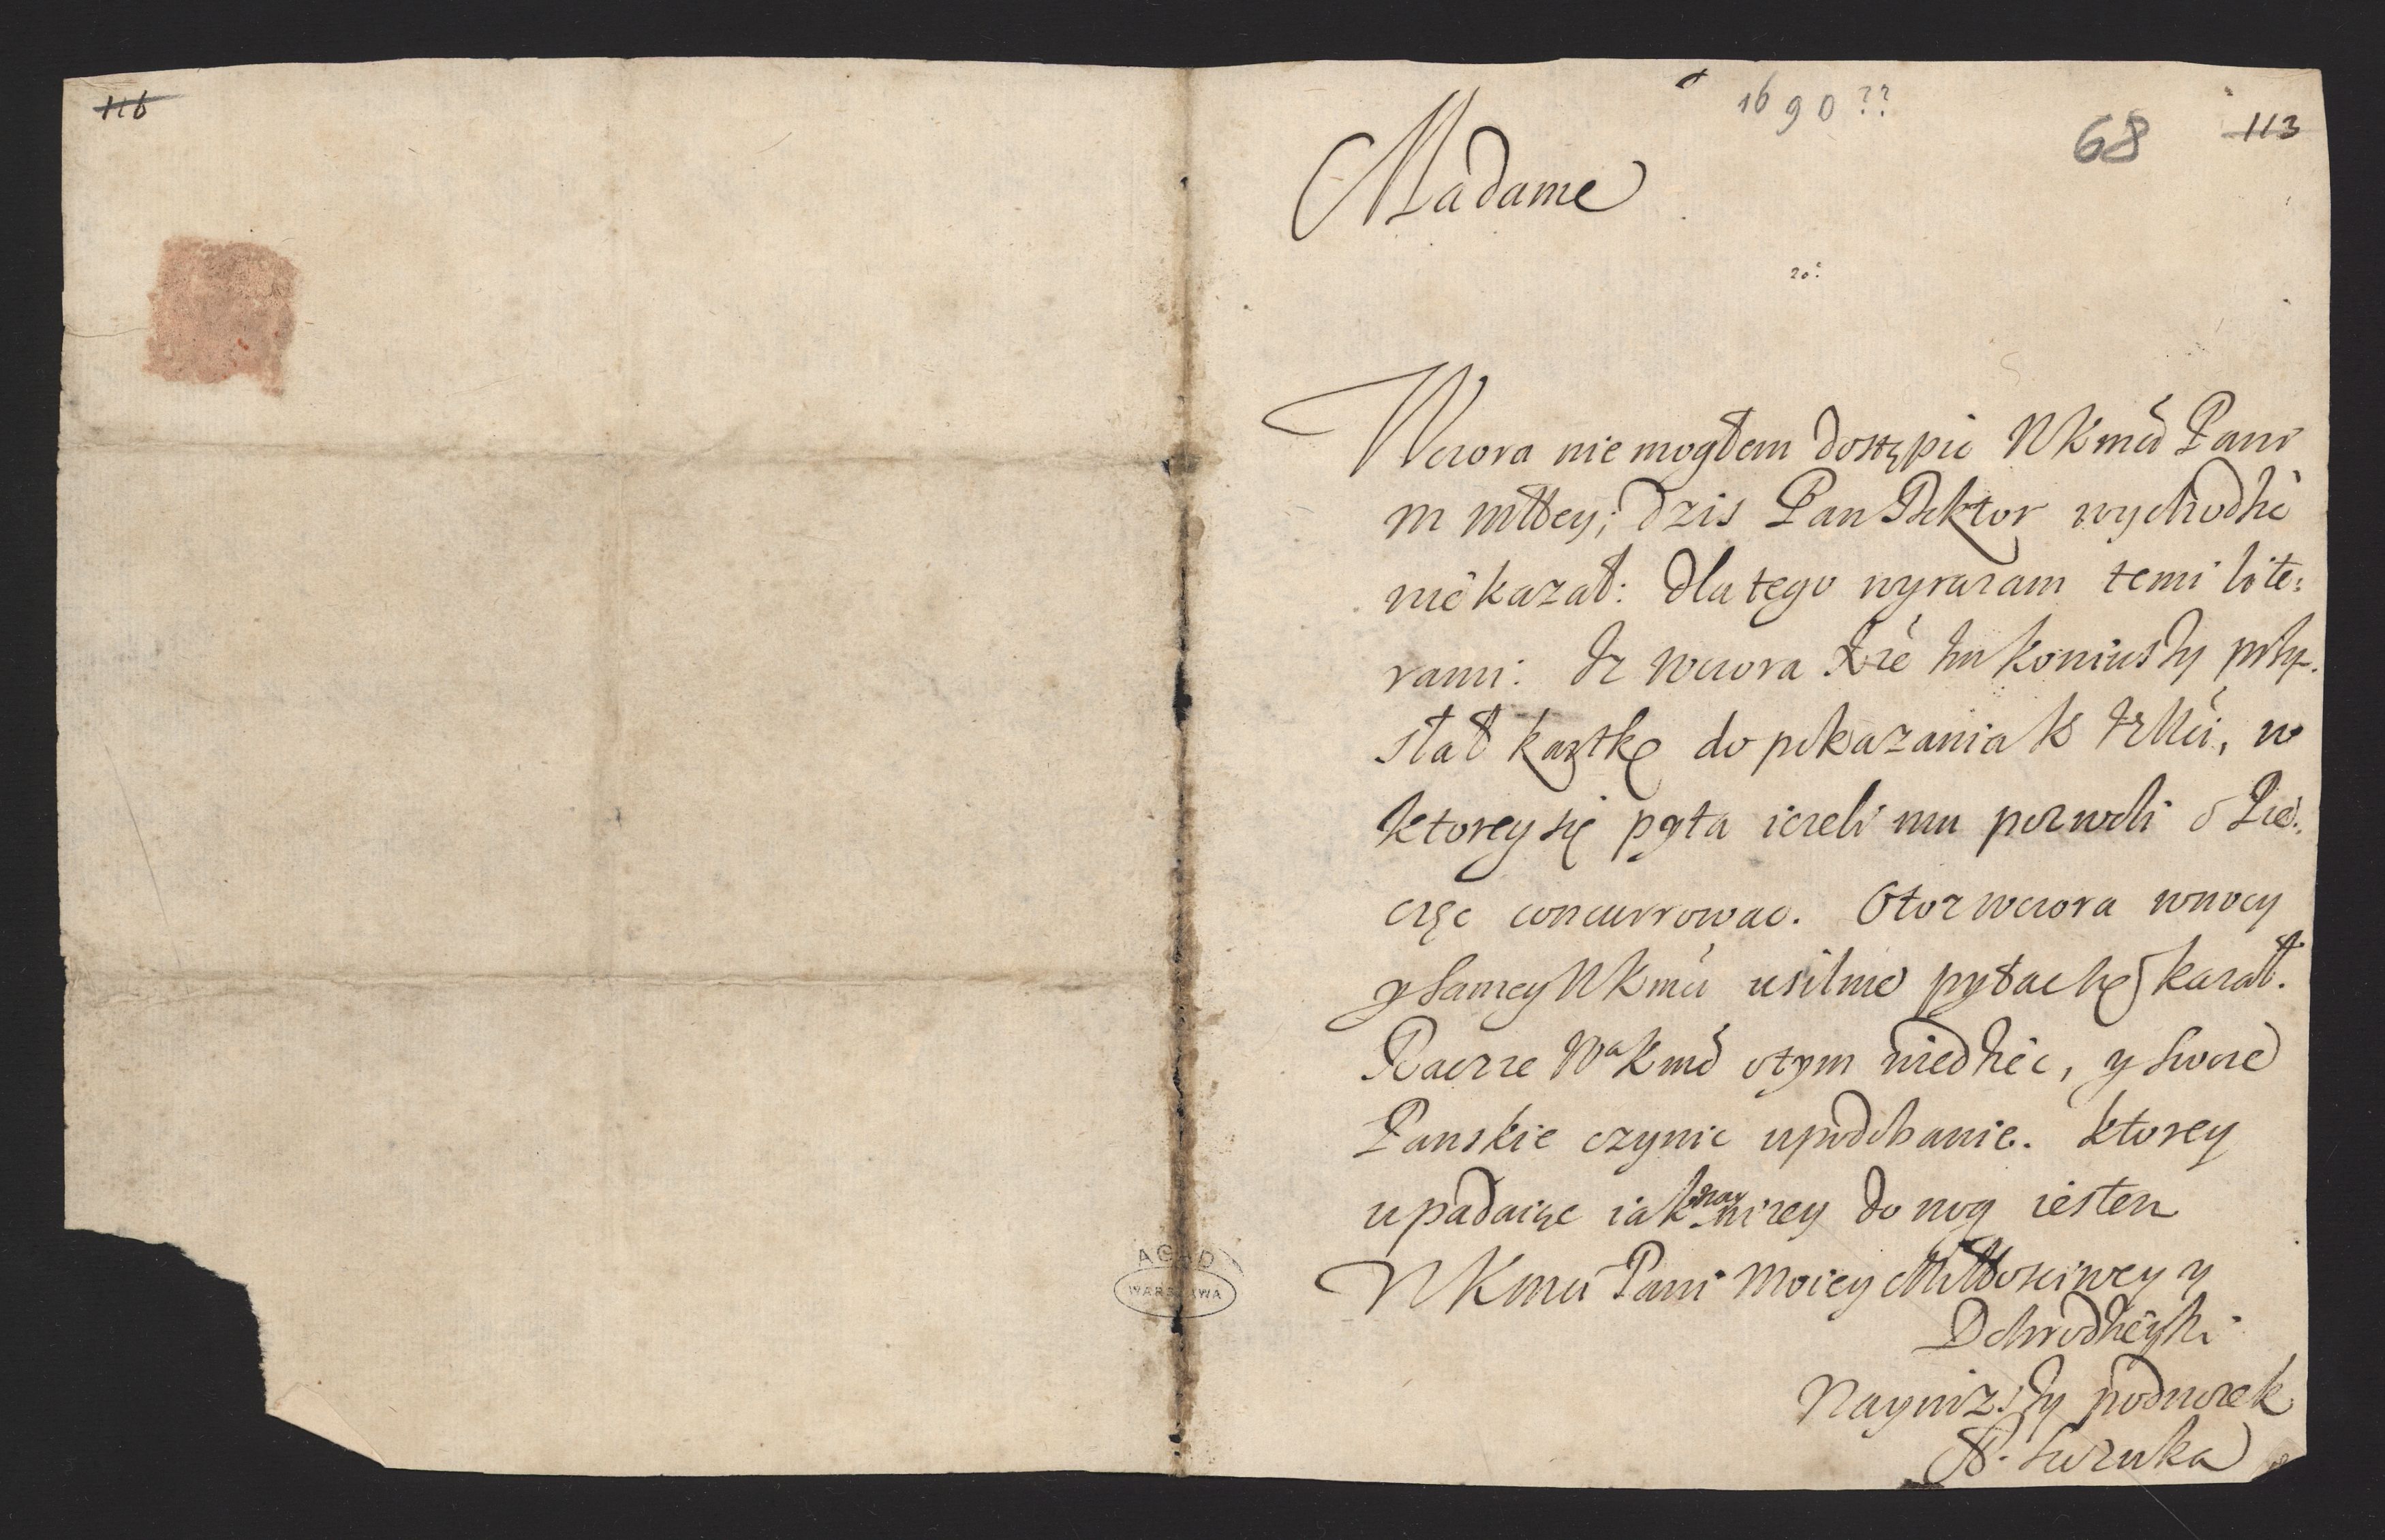 116
1690??
68 113
Madame
20.
Wczora nie mogłem dostąpić WKmći Pani
m młłey; dzis Pan Doktor wychodzić
nie kazał: dla tego wyrazam temi lite:
rami: Iz wczora Xże Im koniuszy przy.
słał kartkę do pokazania K IzMći, w
ktorey się pyta iezeli mu pozwoli o Pie:
częc concurrowac. Otoz wczora wnocy
y samey WKmći usilnie pytac się kazał.
Raczze Wa Kmć otym wiedziec, y swoie
Panskie czynic upodobanie. ktorey
upadaiąc iak nay nizey do nog iestem
WKmći Pani Moiey Miłłosciwey y
Dobrodzieyki
Nayniższy podnozek
Szczuka
AGAD
WARSZAWA